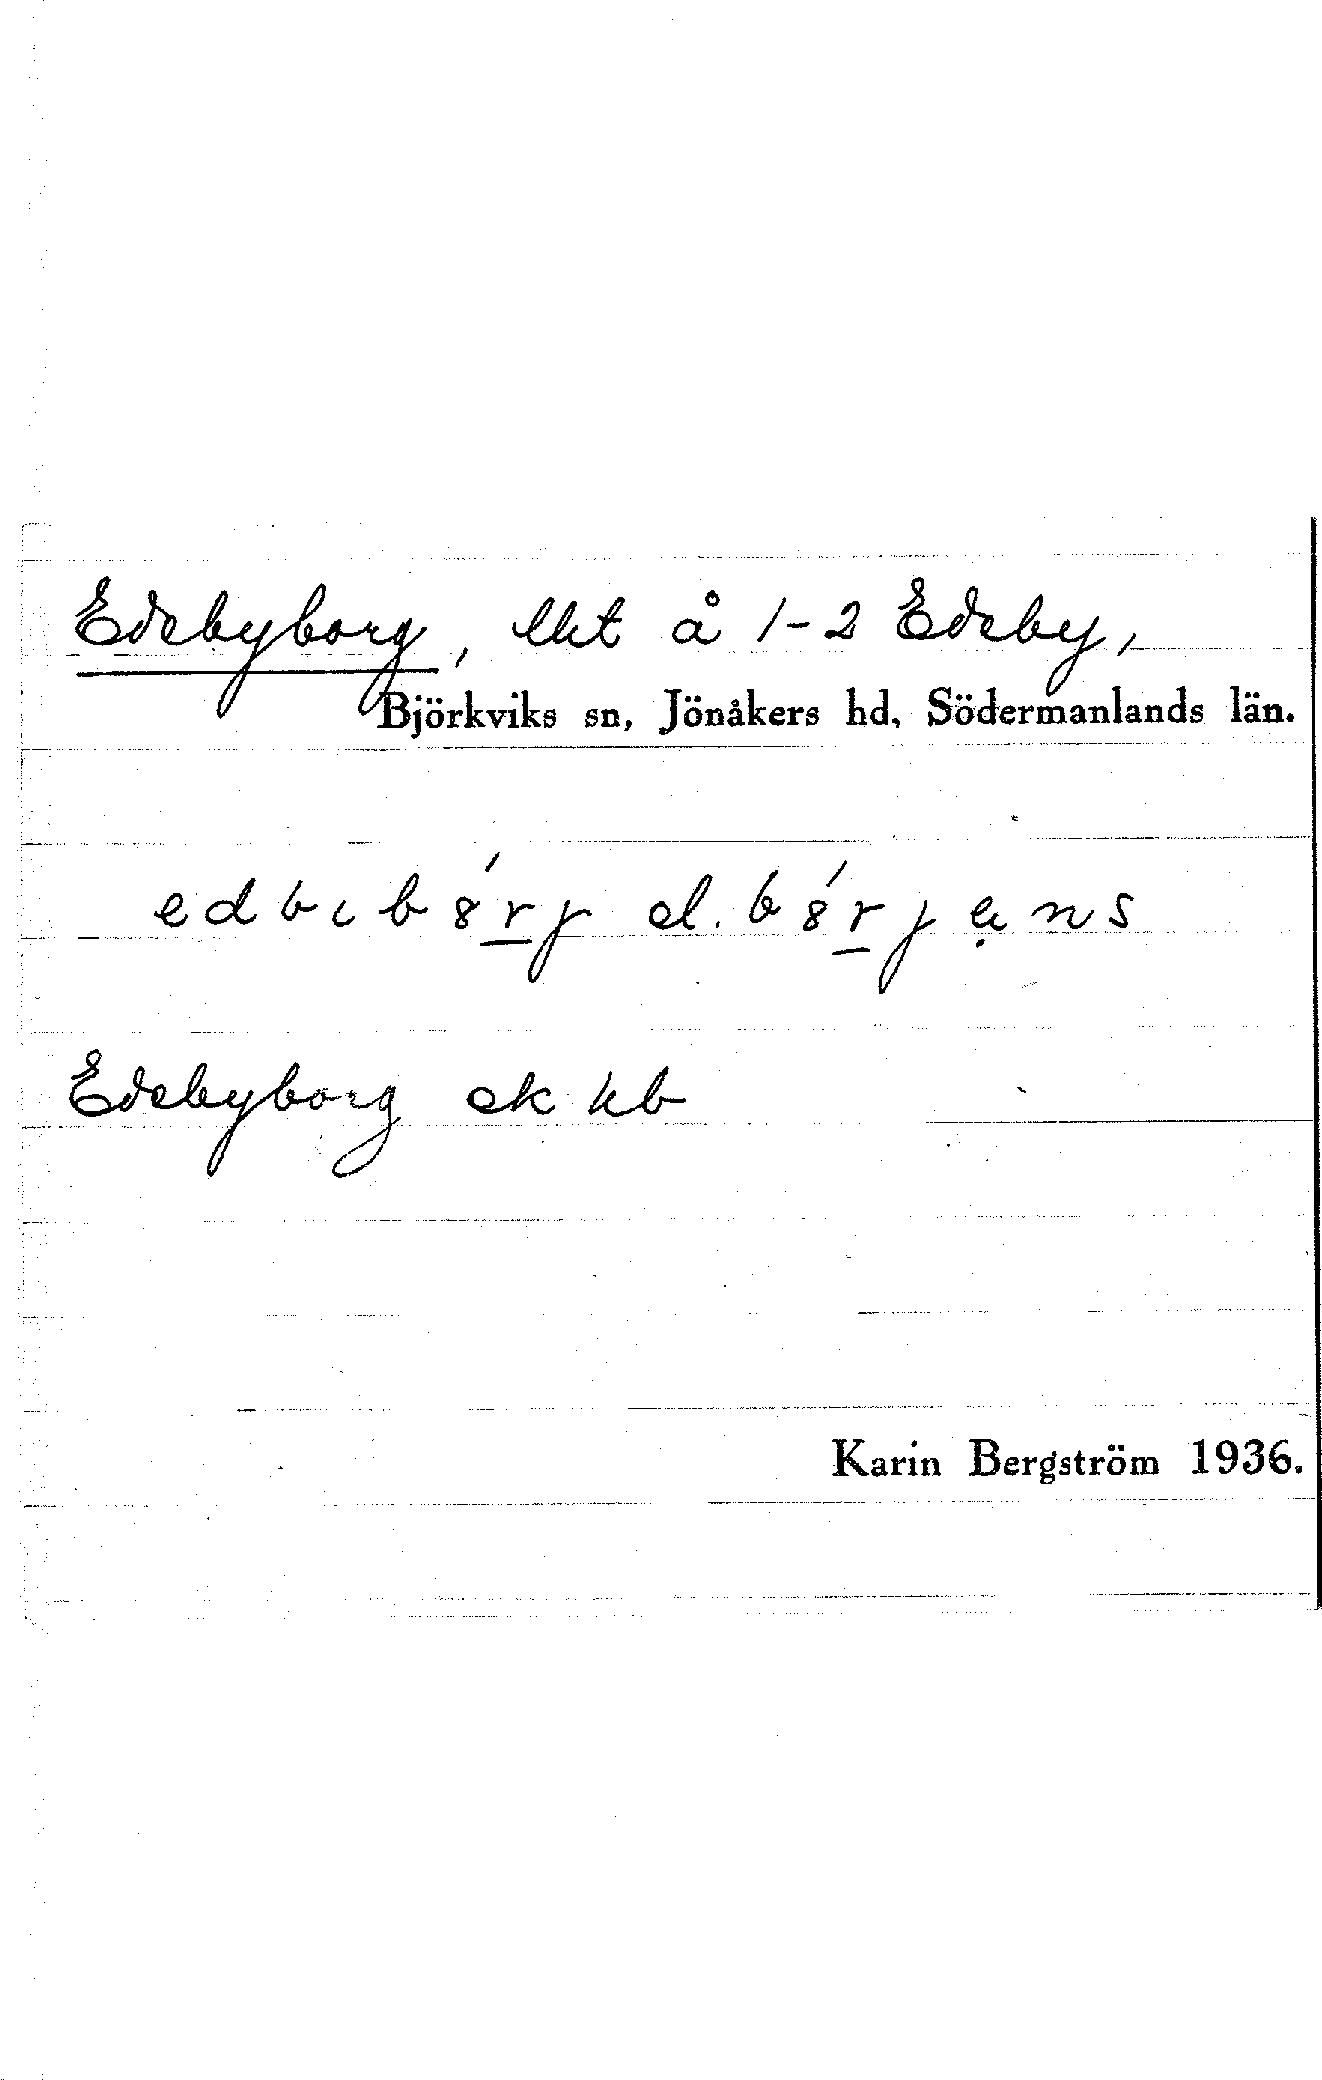 Edebyborg, lht å 1-2 Edeby,
Björkviks sn, Jönåkers hd, Södermanlands län.
edbıb8́r̲j el. b8́r̲jạns
Edebyborg ek kb
Karin Bergström 1936.